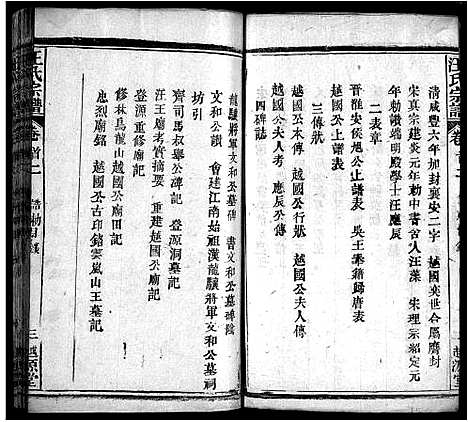 汪氏宗譜
清咸豐六年加封襄安二字　越國奕世合屬封
宋真宗建炎元年中書舍人汪藻　宋理宗紹定元
年勅諭端明殿學士汪應辰
二表章
晉淮安侯旭公上譜表　吳王籍歸唐表
越國公上譜表
三傳狀
越國公本傳　越國公行狀　越國公夫人傳
越國公夫人考　應辰公傳
四碑誌
龍驤將軍文和公墓碑　書文和公墓碑陰
文和公讚　會建江南始祖漢龍驤將軍文和公墓祠
坊引
齊司馬叔舉公碑記　登源洞墓記
汪王廟考實摘要　重建越國公廟記
登源重修廟記
修林烏龍山越國公廟田記
忠烈廟銘　越國公古印銘雲嵐山王墓記
汪氏宗譜
卷首二
三
越源堂